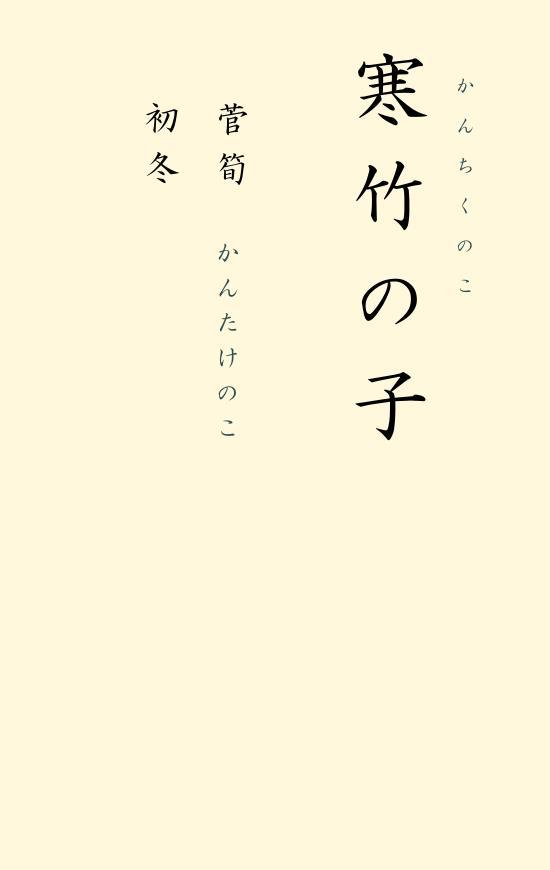 かんちくのこ
寒竹の子
菅筍 かんたけのこ
初冬